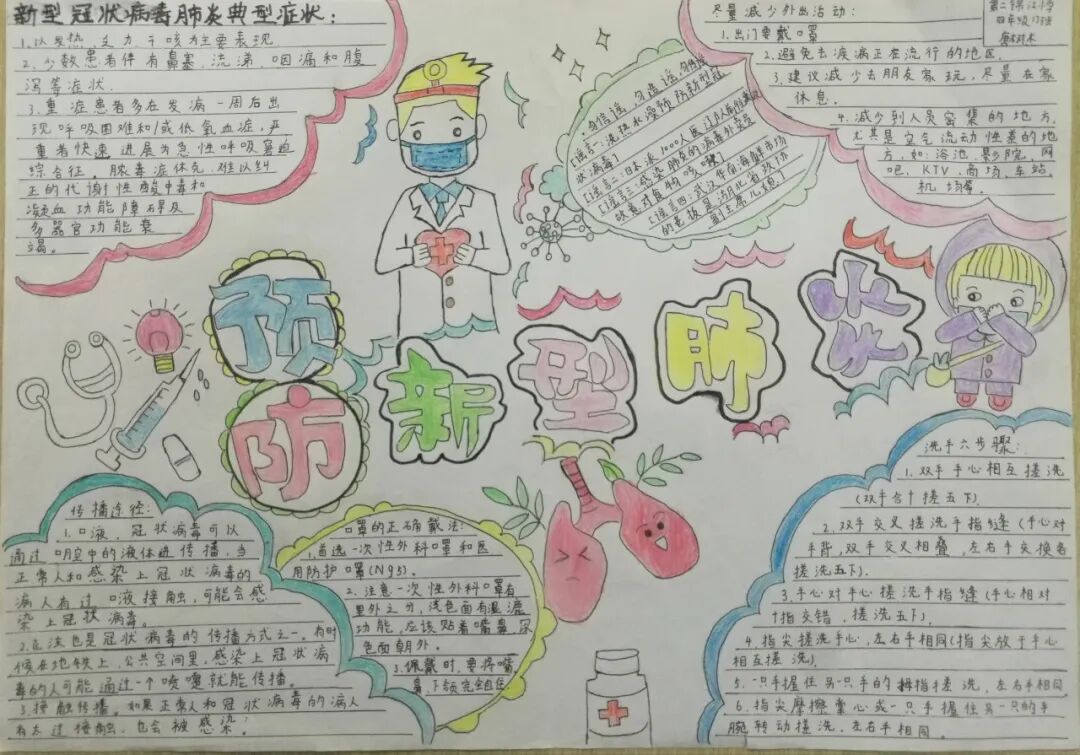 新型冠状病毒肺炎典型症状：
1.以发热、乏力、干咳为主要表现
2.少数患者伴有鼻塞、流涕、咽痛和腹
泻等症状.
3.重症患者多在发病一周后出
现呼吸困难和/或低氧血症,严
重者快速进展为急性呼吸窘迫
综合征.脓毒症休克,难以纠
正的代谢性酸中毒和
凝血功能障碍及
多器官功能衰
竭。
勿信谣,勿造谣,勿传谣
[谣言一:洗热水澡预防新型冠
状病毒]
[谣言四:武汉华南海鲜市场
尽量减少外出活动:
1.出门要戴口罩
2.避免去疾病正在流行的地区.
3.建议减少去朋友家玩,尽量在家
休息.
4.减少到人员密集的地方,
尤其是空气流动性差的地
方.如:浴池、影院、网
吧、KTV、商场、车站.
机场等.
四年级
预防
新型肺炎
传播途径:
1.口液,冠状病毒可以
通过口腔中的液体进传播,当
正常人和感染上冠状病毒的
病人有过口液接触,可能会感
染上冠状病毒。
2.在法也是冠状病毒的传播方式之一.有时
候在地铁上,公共空间里,感染上冠状病
毒的人可能通过一个喷嚏就能传播.
3.接触传播。如果正常人和冠状病毒的病人
有太过接触,也会被感染:
口罩的正确戴法:
1.首选一次性外科口罩和医
用防护口罩(N95).
2.注意一次性外科口罩有
里外之分,浅色面有湿漉
功能,应该贴着嘴鼻,深
色面朝外.
3.佩戴时,要将嘴
鼻、下颌完全包住
洗手六步骤:
1.双手手心相互搓洗
(双手合十搓五下)
2.双手交叉搓洗手指缝(手心对
手背,双手交叉相叠,左右手交换各
搓洗五下).
3.手心对手心搓洗手指缝(手心相对
十指交错,搓洗五下).
4.指尖搓洗手心,左右手相同(指尖放于手心
相互搓洗).
5.一只手握住另一只手的拇指搓洗,左右手相同
6.指尖摩擦掌心或一只手握住另一只的手
腕转动搓洗,左右手相同。